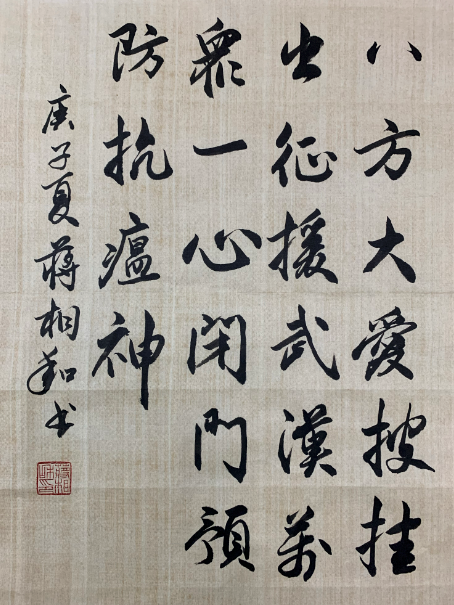 八方大愛披挂
出征援武漢萬
眾一心閉門預
防抗瘟神
庚子夏蔣相和书